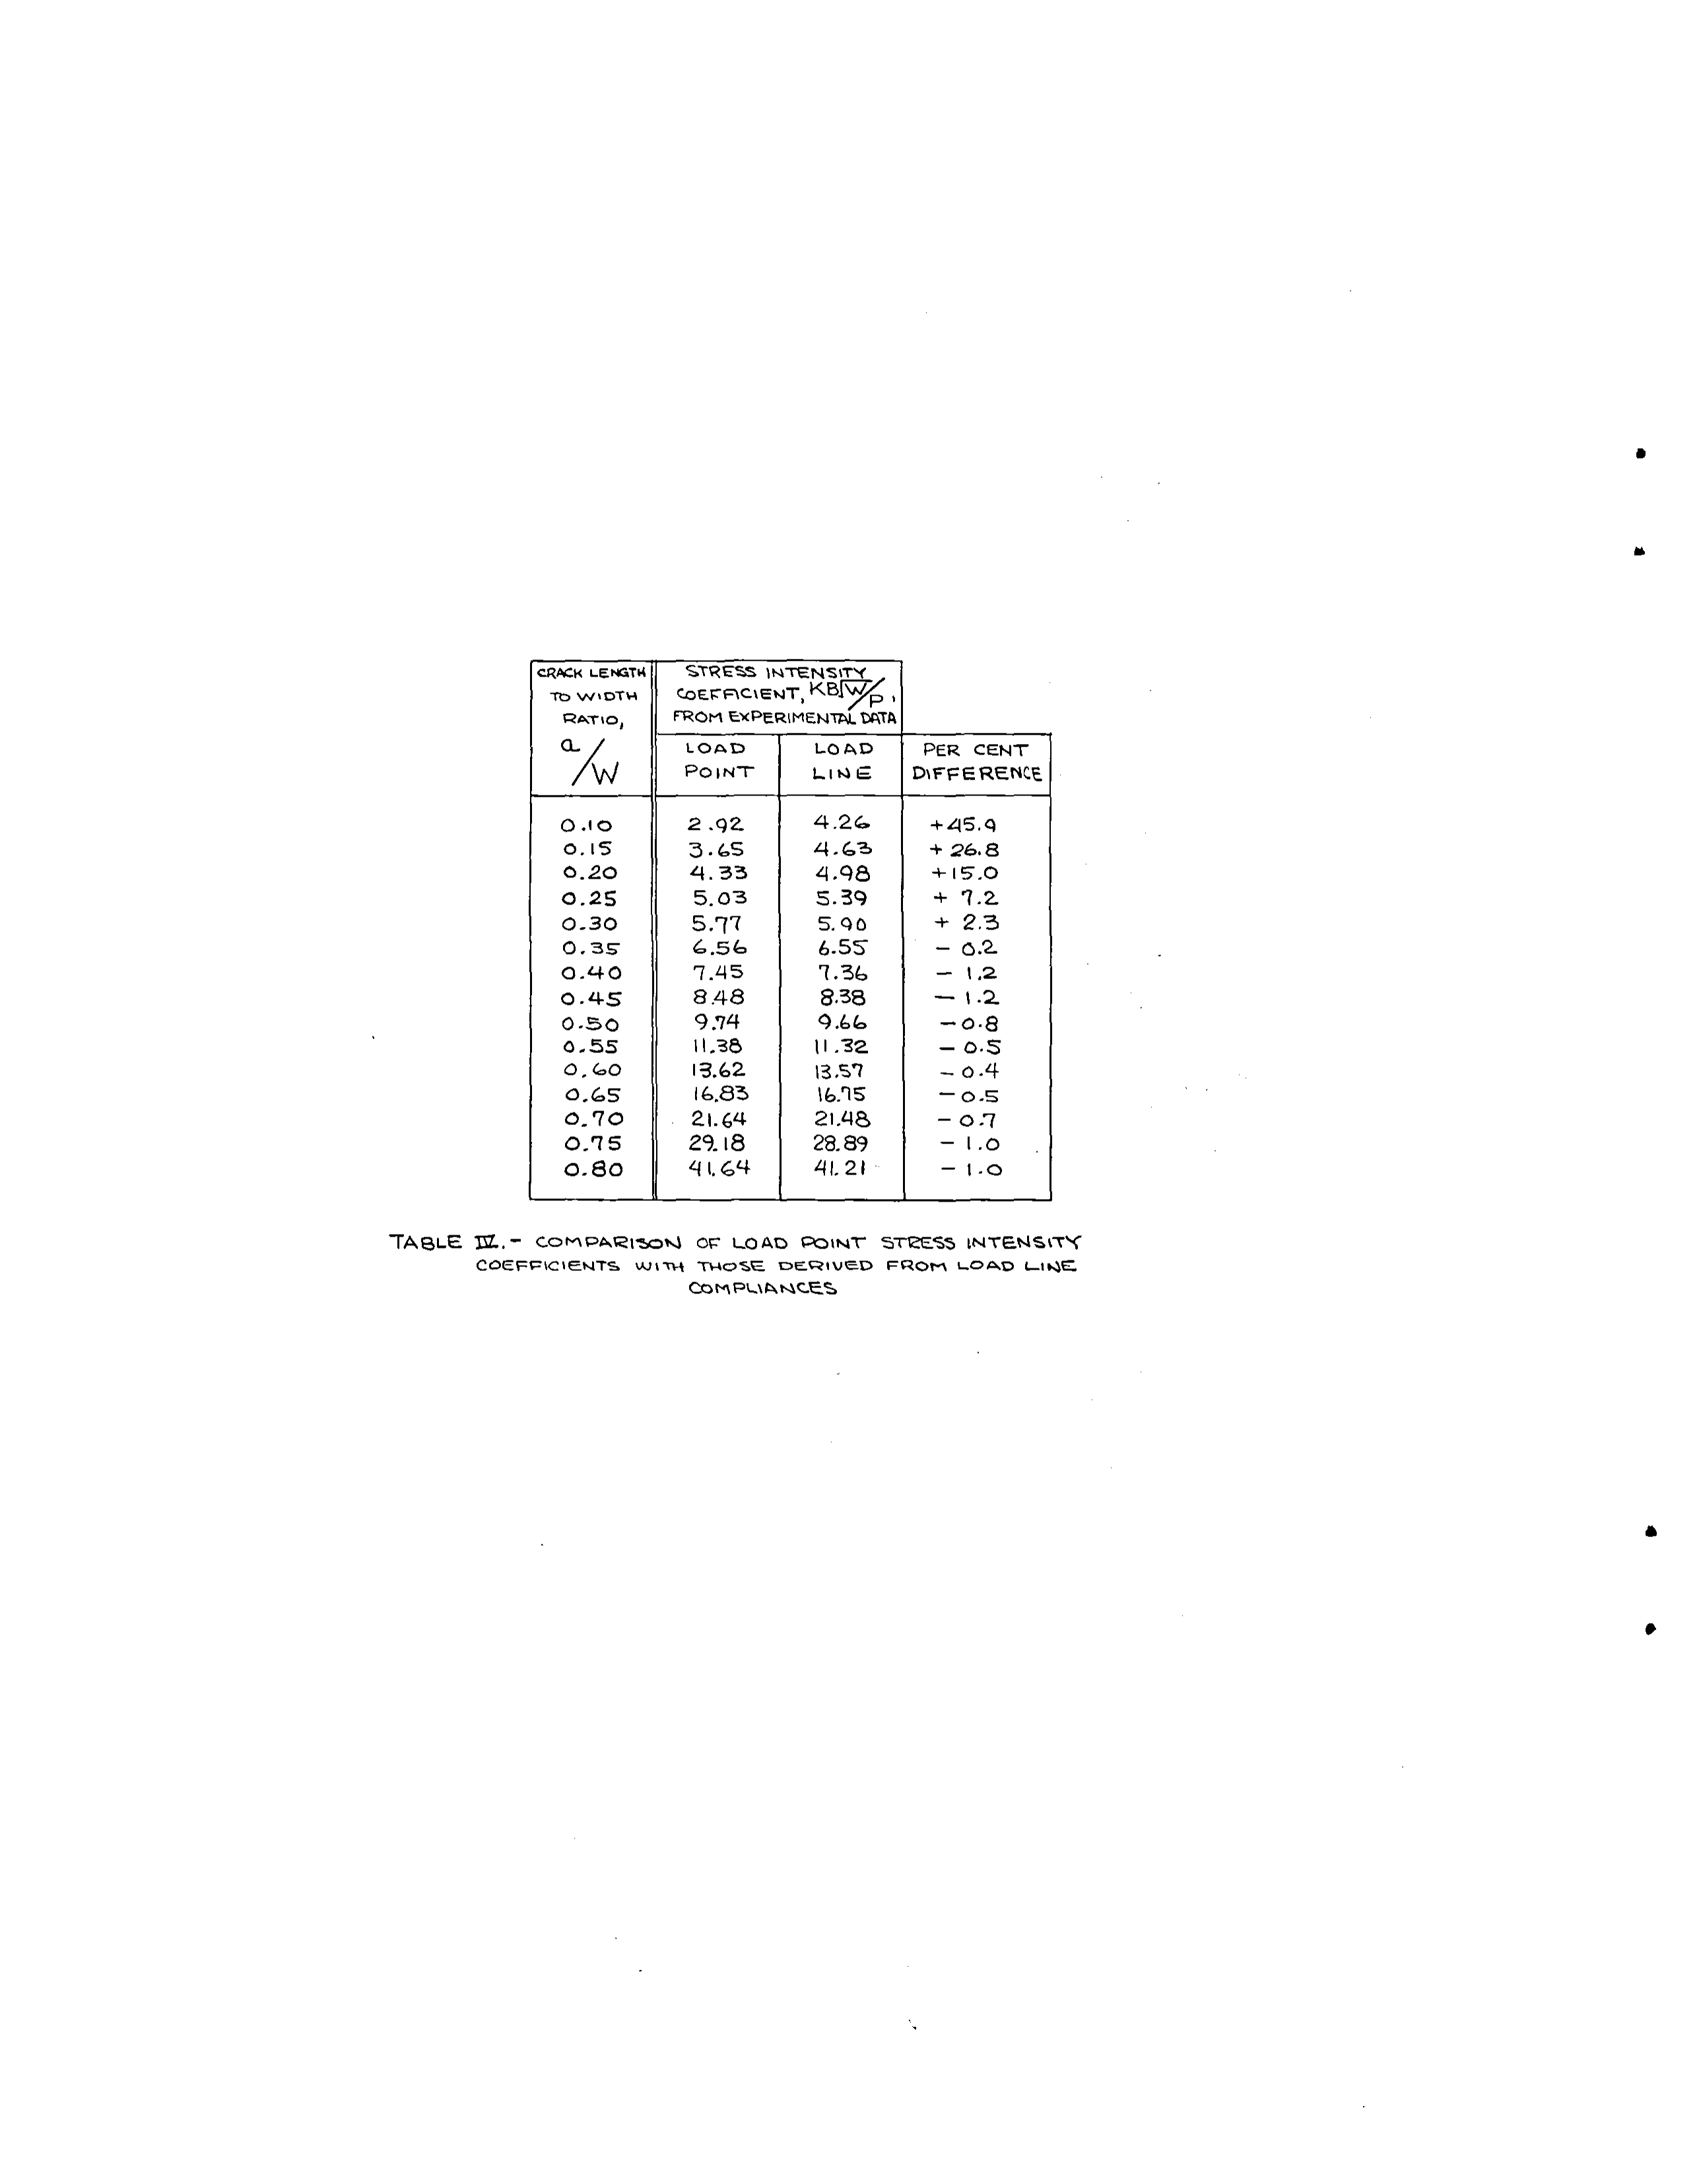 CRACK LENGTH
TO WIDTH
RATIO,
a/W
STRESS INTENSITY
COEFFICIENT, KB√W/P,
FROM EXPERIMENTAL DATA
LOAD POINT
LOAD LINE
PER CENT DIFFERENCE
0.10 2.92 4.26 +45.9
0.15 3.65 4.63 + 26.8
0.20 4.33 4.98 +15.0
0.25 5.03 5.39 + 7.2
0.30 5.77 5.90 + 2.3
0.35 6.56 6.55 - 0.2
0.40 7.45 7.36 - 1.2
0.45 8.48 8.38 - 1.2
0.50 9.74 9.66 -0.8
0.55 11.38 11.32 - 0.5
0.60 13.62 13.57 - 0.4
0.65 16.83 16.75 - 0.5
0.70 21.64 21.48 - 0.7
0.75 29.18 28.89 - 1.0
0.80 41.64 41.21 - 1.0
TABLE IV.- COMPARISON OF LOAD POINT STRESS INTENSITY
COEFFICIENTS WITH THOSE DERIVED FROM LOAD LINE
COMPLIANCES